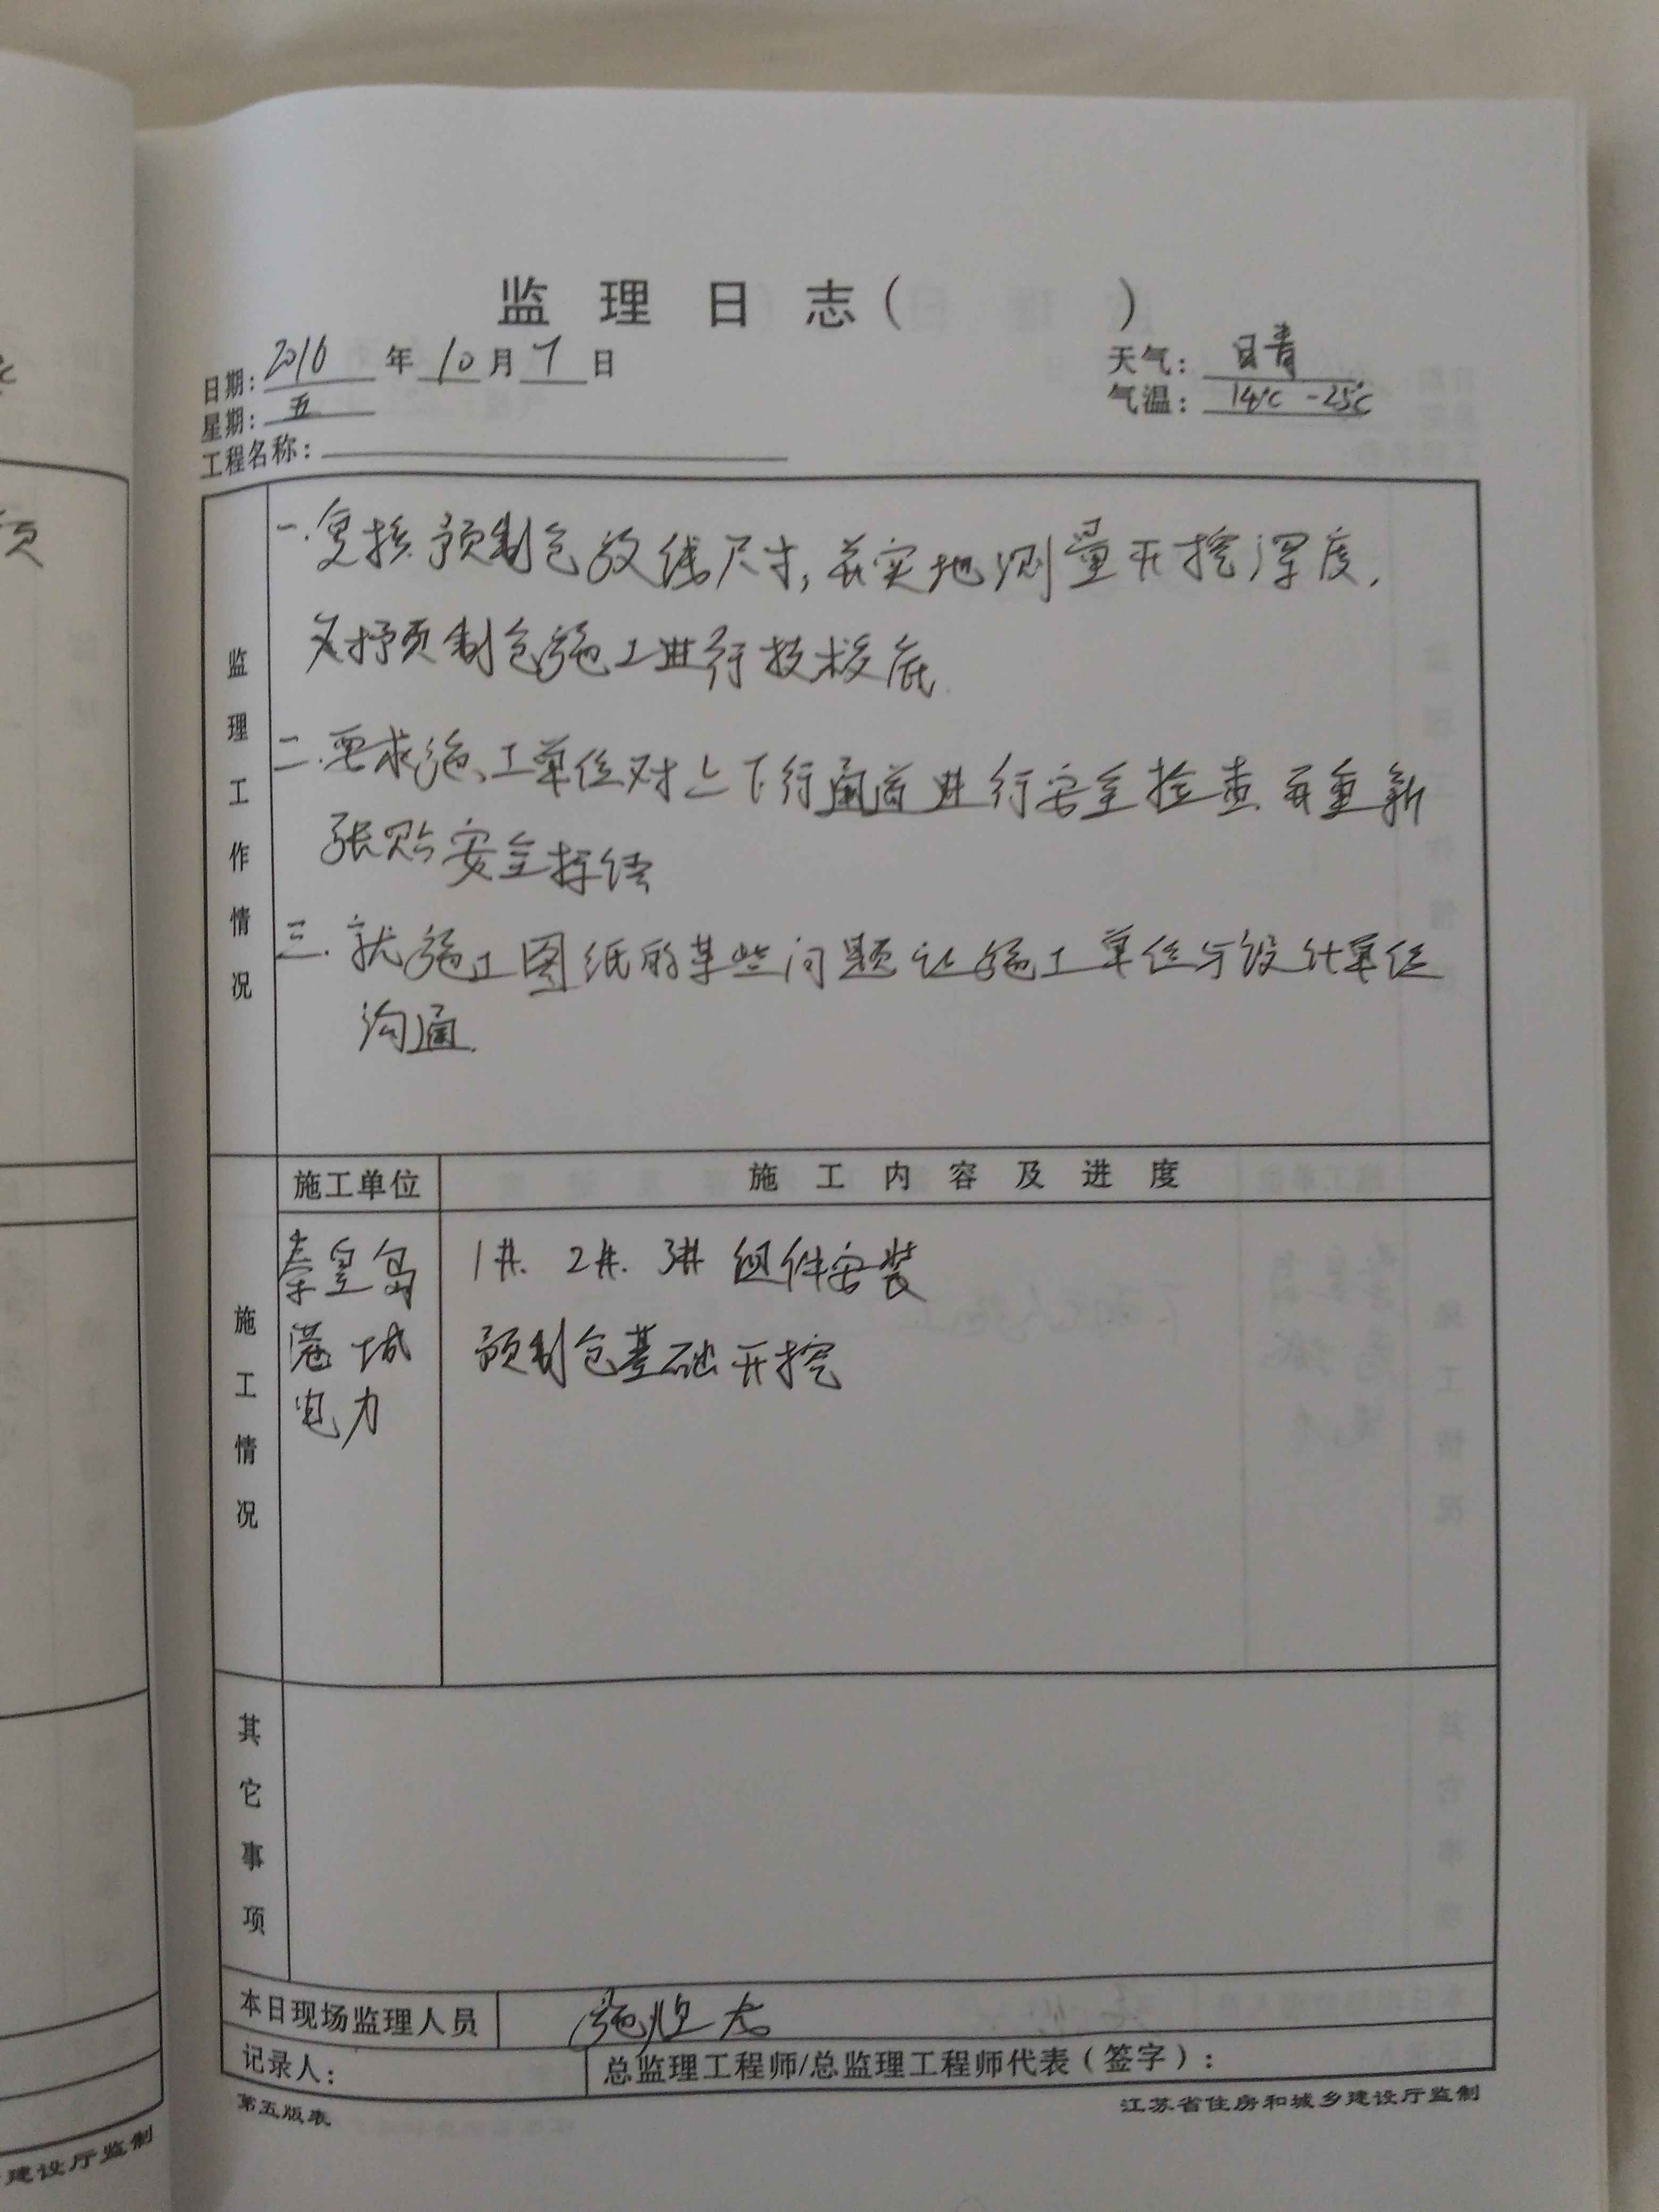 监理日志（ ）
日期：2016年10月7日
天气：晴
星期：五
气温：14℃-25℃
工程名称：
监理工作情况
一.复核预制仓放线尺寸,并实地测量开挖深度,
对预制仓施工进行技术交底
二.要求施工单位对上下行通道进行安全检查并重新
张贴安全标语
三.就施工图纸的某些问题让施工单位与设计单位
沟通.
施工情况
施工单位
施工内容及进度
秦皇岛
港城
电力
1#. 2#. 3# 组件安装
预制仓基础开挖
其它事项
本日现场监理人员
施
记录人：
总监理工程师/总监理工程师代表（签字）：
第五版表
江苏省住房和城乡建设厅监制
建设厅监制